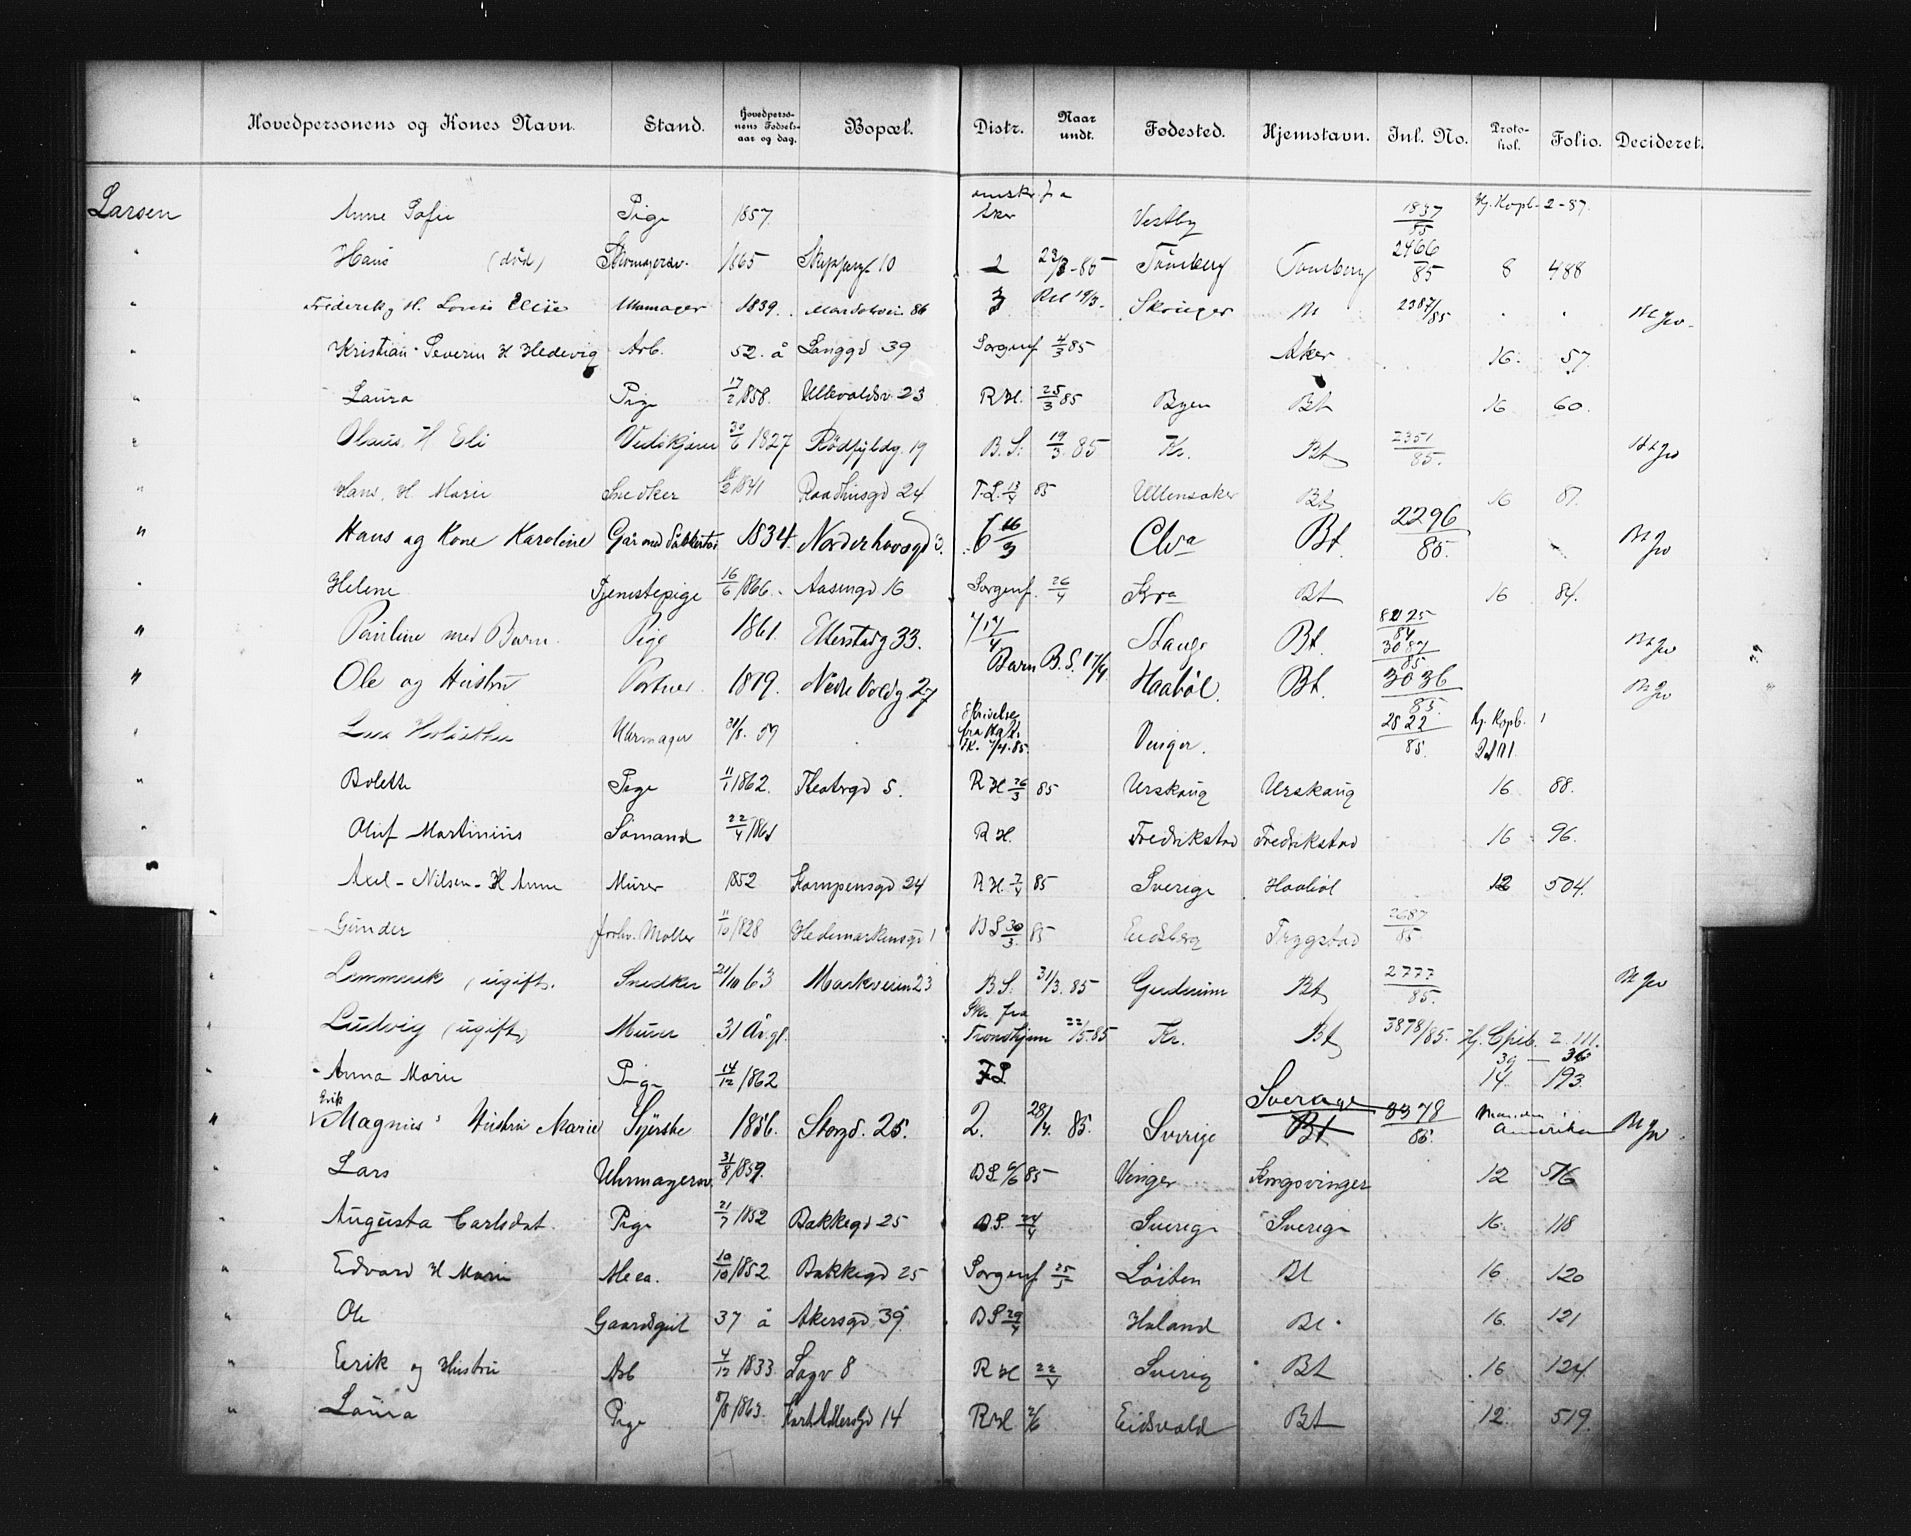 Hovedpersonens og Kones Navn. Stand. Hovedpersonens Fødselsaar og dag. Bopæl. Distr. Naar undt. Fødested. Hjemstavn. Inl. No. Protokol. Folio. Decideret.
Larsen Anne Sofie Pige 1857. fra Aker Vestby 1837/85 Hj. Kopb. 2-87.
" Hans (død) 1865 Skipperg 10 2 23/3-85 Tønsberg Tønsberg 2466/85 8 488
" Frederik, H. Lovise Elise Uhrmager 1839. 86 3 RH 19/3. 2387/85
" Kristian Severin H Hedevig Arb. 52. å Langgd 39 Sorgenf 4/3 85 Aker 16. 57.
" Laura Pige 17/2 1858. Ullevoldsv. 23 R.H. 25/3 85 Byen Bt 16 60.
" Olaus, H Eli 30/6 1827 Rødfyldg. 19 B.S. 19/3. 85 Kr. Bt 2351/85.
" Hans, H. Marie Snedker 1841 Raadhusgd 24 T.L. 13/4 85 Ullensaker Bt 16 87.
" Hans og Kone Karoline 1834. Norderhovsgd 3. 6 16/3 Elv Bt. 2296/85.
" Helene Tjenestepige 16/6 1866. Aasengd 16 Sorgenf. 26/4 Kra Bt 16 84.
" Pauline med Barn. Pige 1861. Etterstadg 33. 7 17/4 Stange Bt. 8225/84 3087/85
" Ole og Hustru Portner. 1819. Nedre Voldg 27 Barn B.S. 17/4 Haabøl. Bt. 3036/85.
" Uhrmager 31/8. 59 Skrivelse fra 7/4.85. Vinger. 2822/85 Kj. Kopb. 1
" Bolette Pige 11/1 1862. Theatergd 5. R H 26/3 85 Urskoug Urskoug 16 88.
" Oluf Martinius Sømand 22/4 1861 R H. Fredrikstad Fredrikstad 16 96.
" Axel - Nilsen - H Anne Murer 1852 Kampensgd 24 R H. 7/4 85 Sverige Haabøl 12 504.
" Gunder forhv. Møller 11/10 1828 Hedemarkensgd 1 B S 30/3. 85 Eidsberg Trygstad 2687/85.
" (ugift). Snedker 21/10 63 Markveien 23 B.S. 31/3. 85 Gjerdrum Bt 2777/85.
" Ludvig (ugift) Murer 31 År gl. Skr. fra Trondhjem 22/5.85 Kr. Bt 3878/85. Kj. Cpib. 2. 111.
" Anna Marie Pige 14/12 1862 F L 39 — 36 14. 193.
" Erik Magnus' Hustru Marie Syerske 1856. Storgd. 25. 2. 28/4. 85. Sverige Sverage Bt 3378/85. Manden i Amerika
" Lars Uhrmagersv. 31/8 1859. B S. 6/6 85 Vinger Kongsvinger 12 516
" Augusta Carlsdat. Pige 21/7 1852 Bakkegd 25 B S. 24/4 Sverige Sverige 16. 118
" Edvard H Marie 10/10 1852 Bakkegd 25 Sorgenf 25/5 Løiten Bt 16. 120
" Ole Gaardsgut 37 å Akersgd 39. B S 29/4 Høland Bt. 16. 121
" Eerik og Hustru Arb 4/12 1833 Lagv 8 R H 22/4 Sverig Bt 16 124
" Laura Pige 1863. Karl Adlersgd 14 R H 2/6 Eidsvold Bt 12. 519.